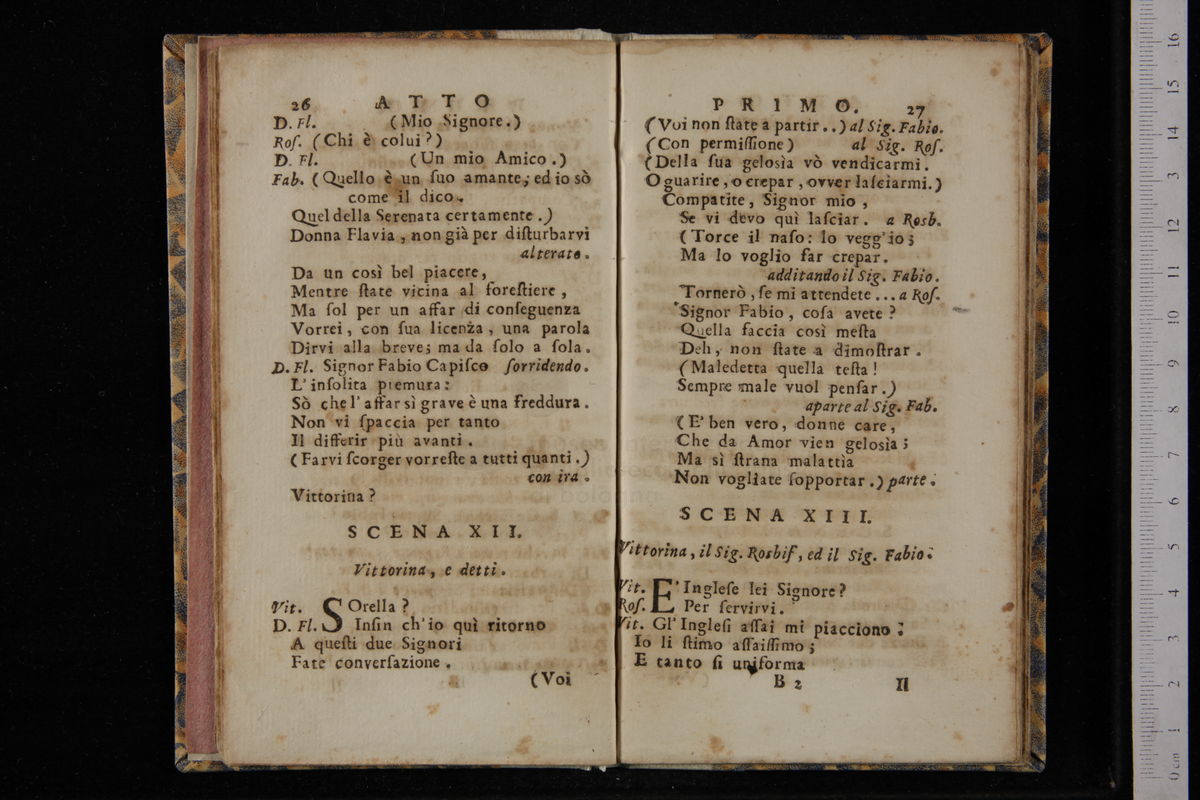 26 ATTO
D. Fl. (Mio Signore.)
Roſ. (Chi è colui?)
D. Fl. (Un mio Amico.)
Fab. (Quello è un ſuo amante; ed io sò
come il dico.
Quel della Serenata certamente.)
Donna Flavia, non già per diſturbarvi
alterato.
Da un così bel piacere,
Mentre ſtate vicina al foreſtiere,
Ma ſol per un affar di conſeguenza
Vorrei, con ſua licenza, una parola
Dirvi alla breve; ma da ſolo a ſola.
D. Fl. Signor Fabio Capiſco ſorridendo.
L' inſolita premura:
Sò che l' affar sì grave è una freddura.
Non vi ſpaccia per tanto
Il differir più avanti.
(Farvi ſcorger vorreſte a tutti quanti.)
con ira.
Vittorina?
SCENA XII.
Vittorina, e detti.
Vit. SOrella?
D. Fl. Inſin ch' io quì ritorno
A queſti due Signori
Fate converſazione.
(Voi
PRIMO. 27
(Voi non ſtate a partir..) al Sig. Fabio.
(Con permiſſione) al Sig. Roſ.
(Della ſua gelosìa vò vendicarmi.
O guarire, o crepar, ovver laſciarmi.)
Compatite, Signor mio,
Se vi devo quì laſciar. a Rosb.
(Torce il naſo: lo vegg' io;
Ma lo voglio far crepar.
additando il Sig. Fabio.
Tornerò, ſe mi attendete... a Roſ.
Signor Fabio, coſa avete?
Quella faccia così meſta
Deh, non ſtate a dimoſtrar.
(Maledetta quella teſta!
Sempre male vuol penſar.)
aparte al Sig. Fab.
(E' ben vero, donne care,
Che da Amor vien gelosìa;
Ma sì ſtrana malattìa
Non vogliate ſopportar.) parte.
SCENA XIII.
Vittorina, il Sig. Rosbif, ed il Sig. Fabio.
Vit. E' Ingleſe lei Signore?
Roſ. Per ſervirvi.
Vit. Gl' Ingleſi aſſai mi piacciono;
Io li ſtimo aſſaiſſimo;
E tanto ſi uniforma
B 2 Il